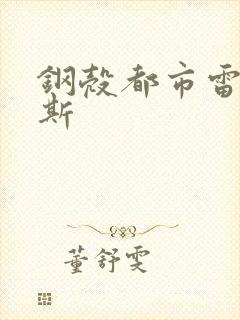 鋼殼都市雷
斯
董舒雯